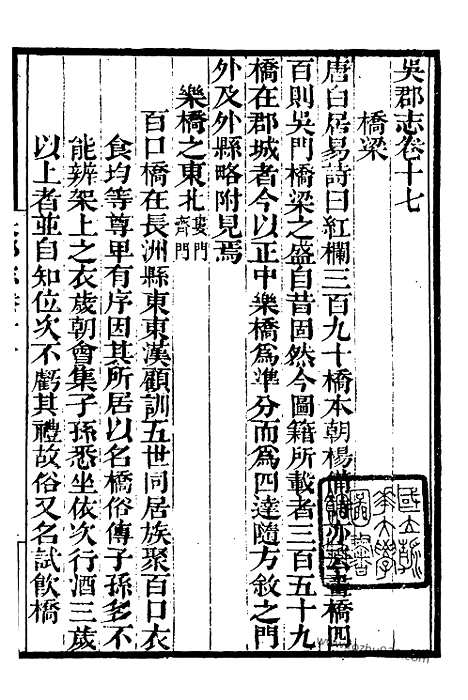 吳郡志卷十七
橋梁
唐白居易詩曰紅欄三百九十橋本朝楊備亦云畫橋四
百則吳門橋梁之盛自昔固然今圖籍所載者三百五十九
橋在郡城者今以正中樂橋爲準分而爲四達隨方敘之門
外及外縣略附見焉
樂橋之東北婁門齊門
百口橋在長洲縣東東漢顧訓五世同居族聚百口衣
食均等尊卑有序因其所居以名橋俗傳子孫多不
能辨架上之衣歲朝會集子孫悉坐依次行酒三歲
以上者並自知位次不虧其禮故俗又名試飮橋